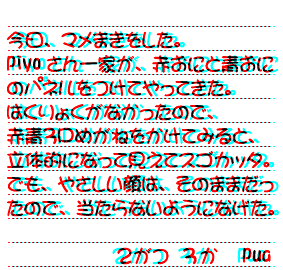 今日、マメまきをした。
Piyoさん一家が、赤おにと青おに
のパネルをつけてやってきた。
はくりょくがなかったので、
赤青3Dめがねをかけてみると、
立体的になって見えてスゴかッタ。
でも、やさしい顔は、そのままだっ
たので、当たらないようになげた。
2がつ 3か Pug